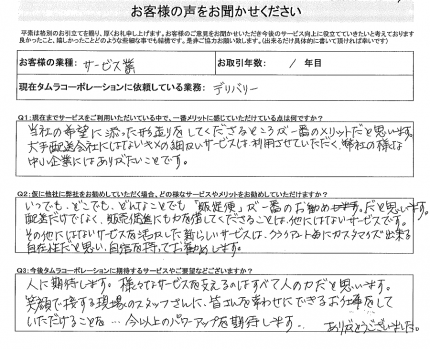 お客様の声をお聞かせください
平素は格別のお引立てを賜り、厚くお礼申し上げます。お客様のご意見をお聞かせいただき今後のサービス向上に役立てていきたいと考えております
良かったこと、嬉しかったことどのような些細な事でも結構です。是非ご協力お願い致します。(出来るだけ具体的に書いて頂ければ幸いです)
お客様の業種: サービス業
お取引年数: / 年目
現在タムラコーポレーションに依頼している業務: デリバリー
Q1:現在までサービスをご利用いただいている中で、一番メリットに感じていただけている点は何ですか?
当社の希望に添った形走りをしてくださるところが一番のメリットだと思います。
大手配送会社にはないキメの細かいサービスは、利用させていただく、弊社の様な
中小企業にはありがたいことです。
Q2:仮に他社に弊社をお勧めしていただく場合、どの様なサービスやメリットをお勧めしていただけますか?
いつでも、どこでも、どんなことでも「販促便」が一番のお勧めだと思います。
配送だけでなく、販売促進にも力を貸してくださることは、他にはないサービスです。
その他にはないサービスを活かした新らしいサービスは、クライアント毎にカスタマイズ出来る
自在性だと思い、自信を持ってお勧めします。
Q3:今後タムラコーポレーションに期待するサービスやご要望などございますか?
人に期待します。様々なサービスを支えるのはすべて人の力だと思います。
笑顔で接する現場のスタッフさんに、皆さんを幸わせにできるお仕事をして
いただけることを…今以上のパワーアップを期待します。
ありがとうございました。